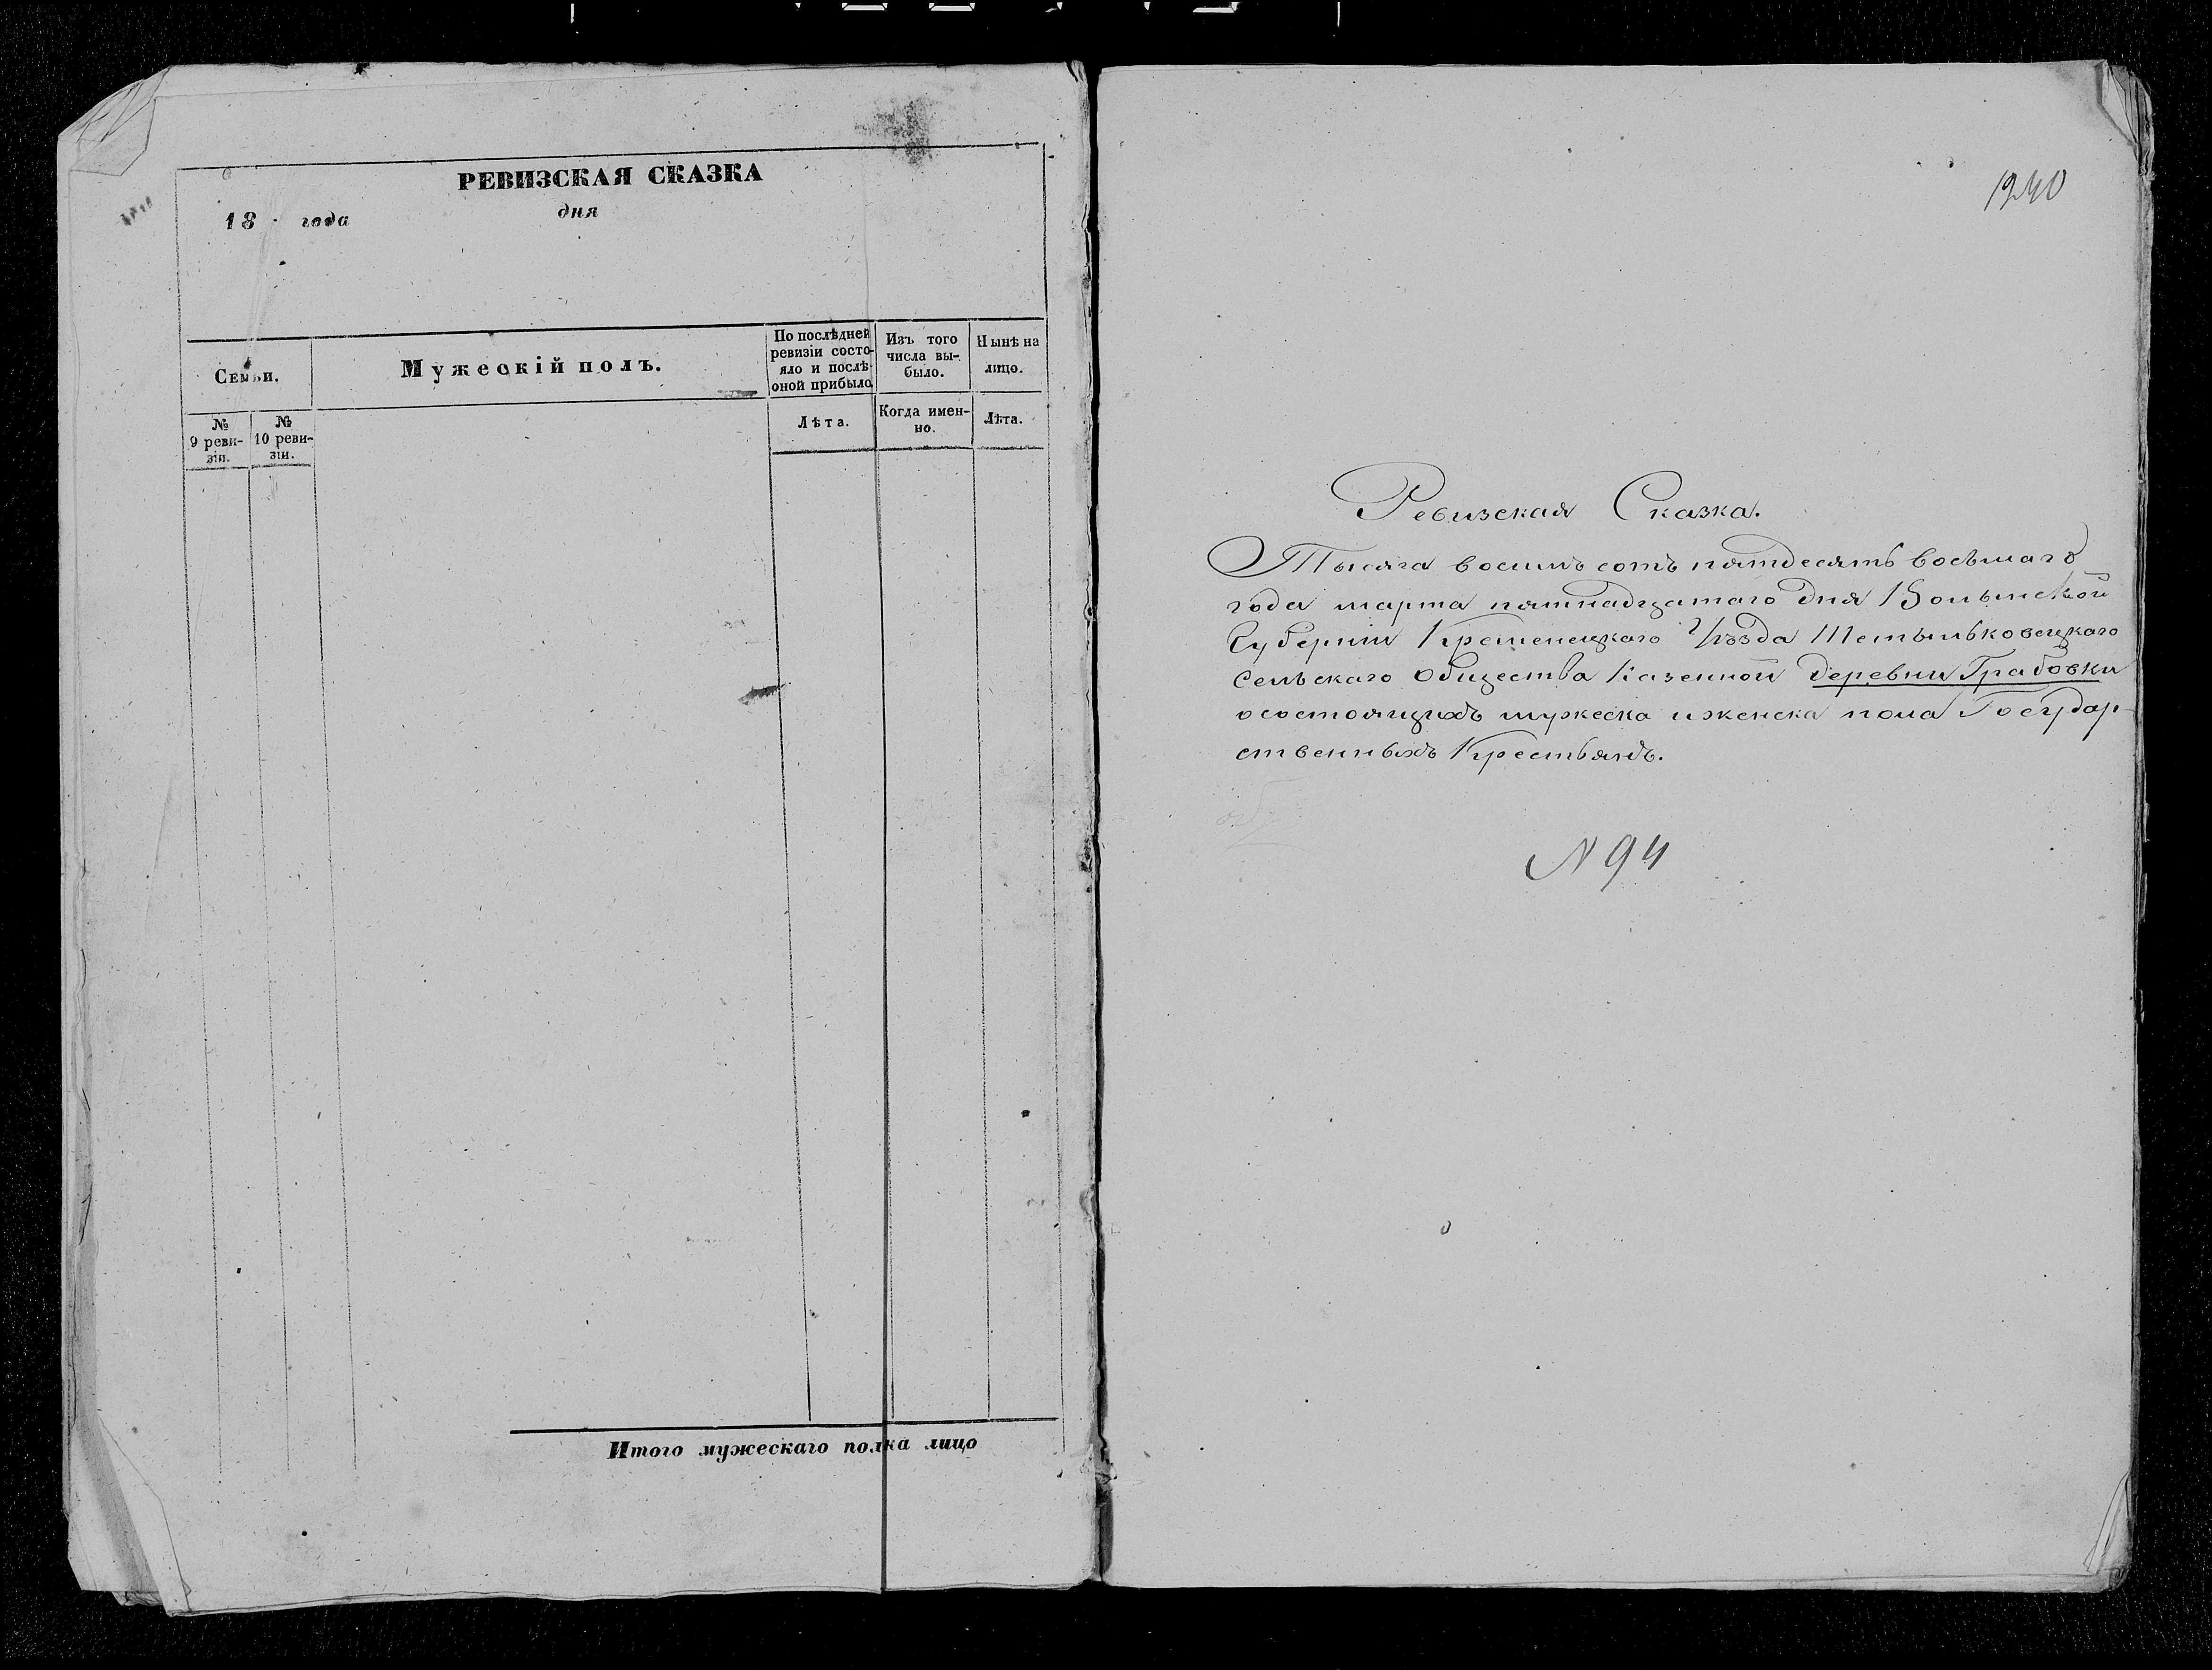 РЕВИЗСКАЯ СКАЗКА
18 года дня
Семьи.
Мужескій полъ.
По послѣдней
ревизіи состо-
яло и послѣ
оной прибыло
Изъ того
числа вы-
было.
Нынѣ на
лицо.
№
9 реви-
зіи.
№
10 реви-
зіи.
Лѣта.
Когда имен-
но.
Лѣта.
Итого мужескаго пол ка лицо
1240
Ревизская Сказка.
Тысяча восимъ сотъ пятдесятъ восьмаго
года марта пятнадцатаго дня Волынской
Губерніи Кременецкаго Уѣзда
Сельскаго Общества Казенной деревни Грабовки
о состоящихъ мужеска и женска пола Государ-
ственныхъ Крестьянъ.
N 94